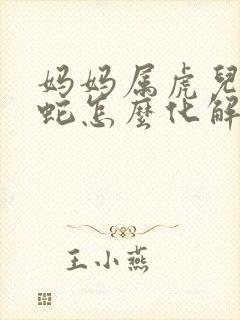 妈妈属虎兒
蛇怎麼化解
王小燕